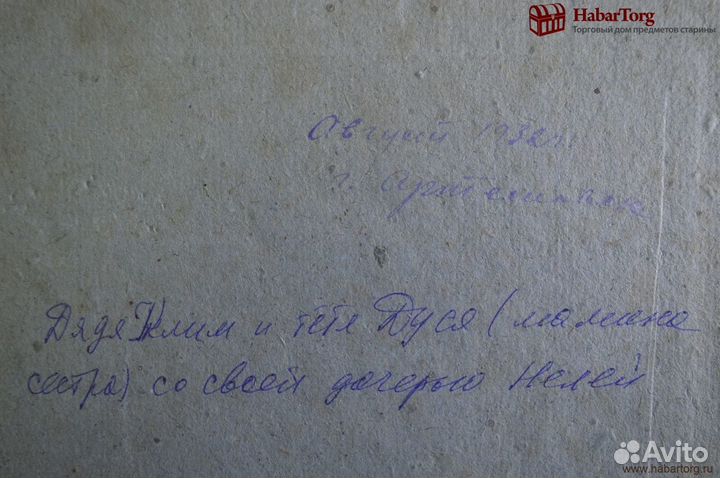 HabarTorg
Торговый дом предметов старины
Август 1932 г.
г. Артемовск
Дядя Клим и тётя Дуся (мамина
сестра) со своей дочерью Нелей
Avito
www.habartorg.ru